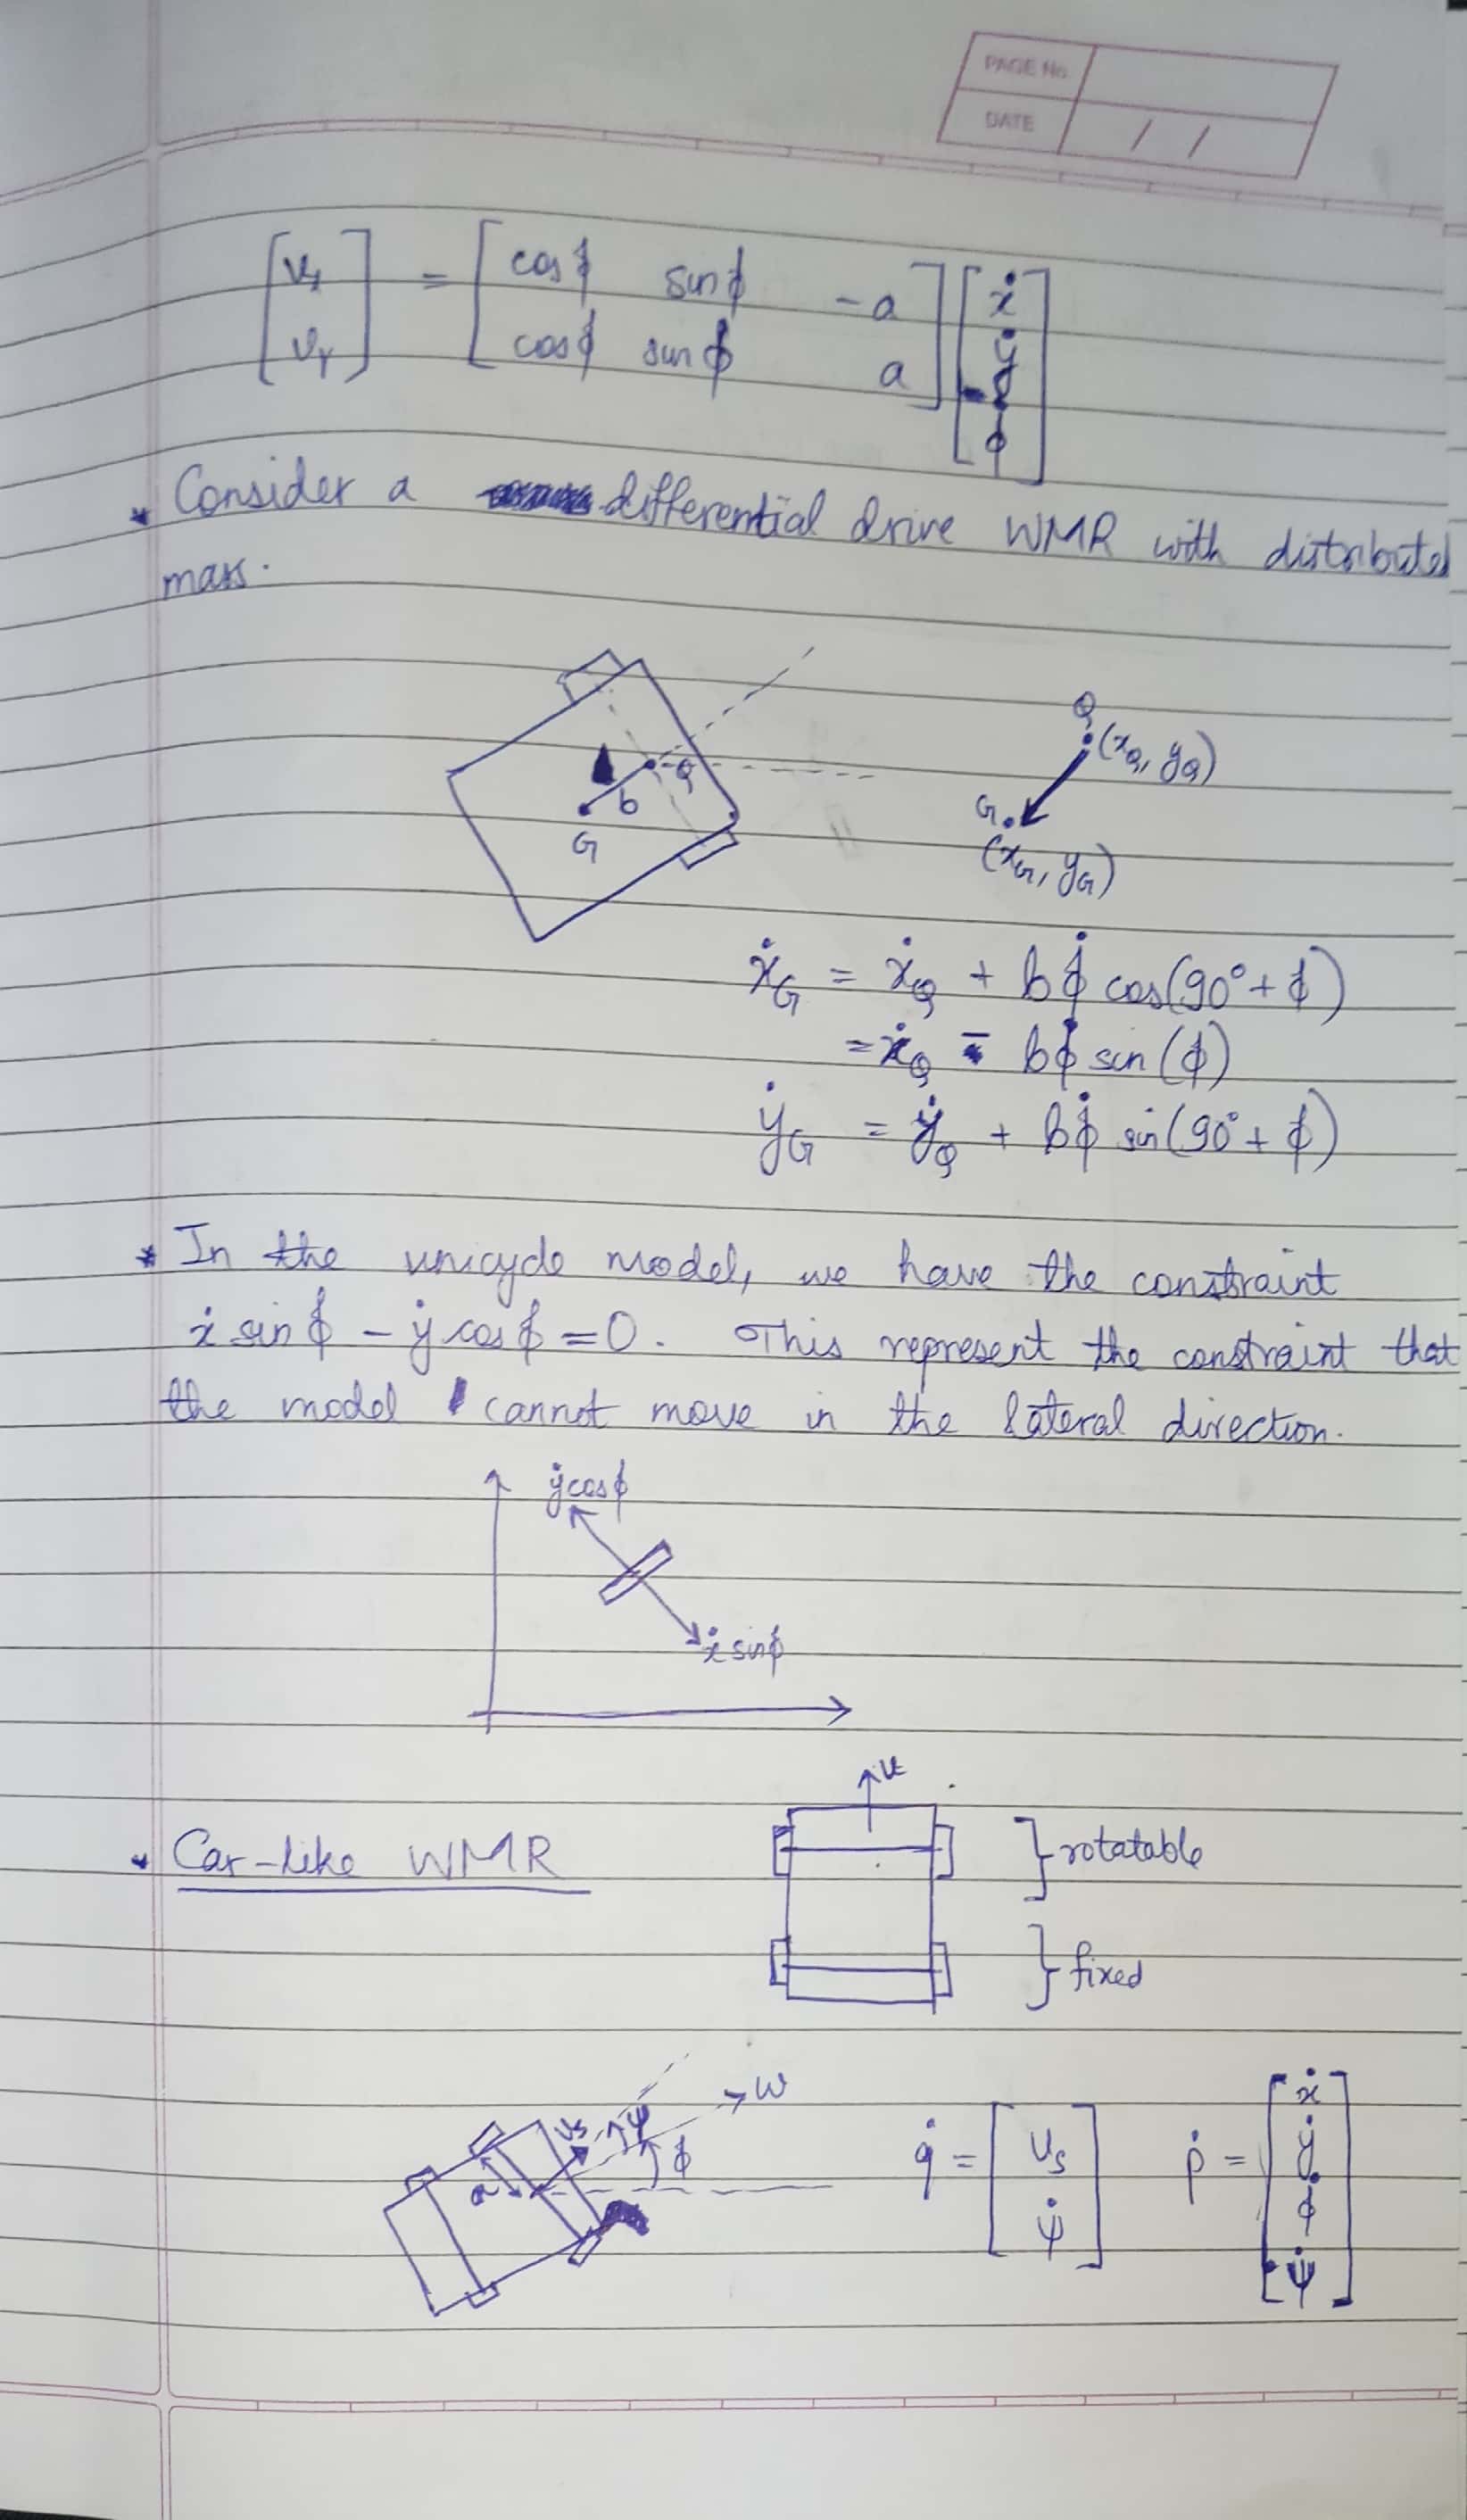 PAGE No.
DATE / /
[v_l; v_r] = [cosϕ sinϕ -a; cosϕ sinϕ a] [ẋ; ẏ; ϕ̇]
* Consider a differential drive WMR with distributed
mass.
Q
b
G
Q
(x_Q, y_Q)
G
(x_G, y_G)
ẋ_G = ẋ_Q + bϕ̇ cos(90° + ϕ)
= ẋ_Q - bϕ̇ sin(ϕ)
ẏ_G = ẏ_Q + bϕ̇ sin(90° + ϕ)
* In the unicycle model, we have the constraint
ẋ sinϕ - ẏ cosϕ = 0. This represent the constraint that
the model cannot move in the lateral direction.
ẏcosϕ
ẋ sinϕ
* Car-like WMR
} rotatable
} fixed
a
v_s
ψ
ϕ
q̇ = [v_s; ψ̇] ṗ = [ẋ; ẏ; ϕ̇; ψ̇]